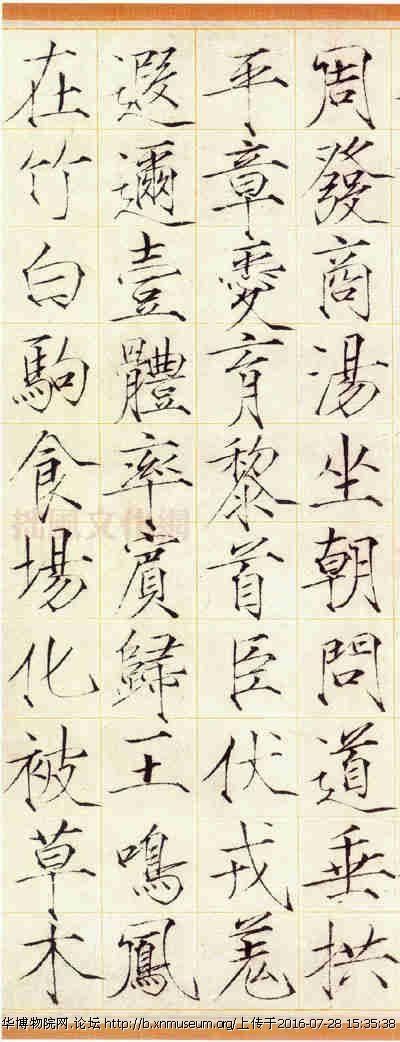 周發商湯坐朝問道垂拱
平章愛育黎首臣伏戎羌
遐邇壹體率賓歸王鳴鳳
在竹白駒食場化被草木
拙風文化網
华博物院网.论坛 http://b.xnmuseum.org/上传于2016-07-28 15:35:38